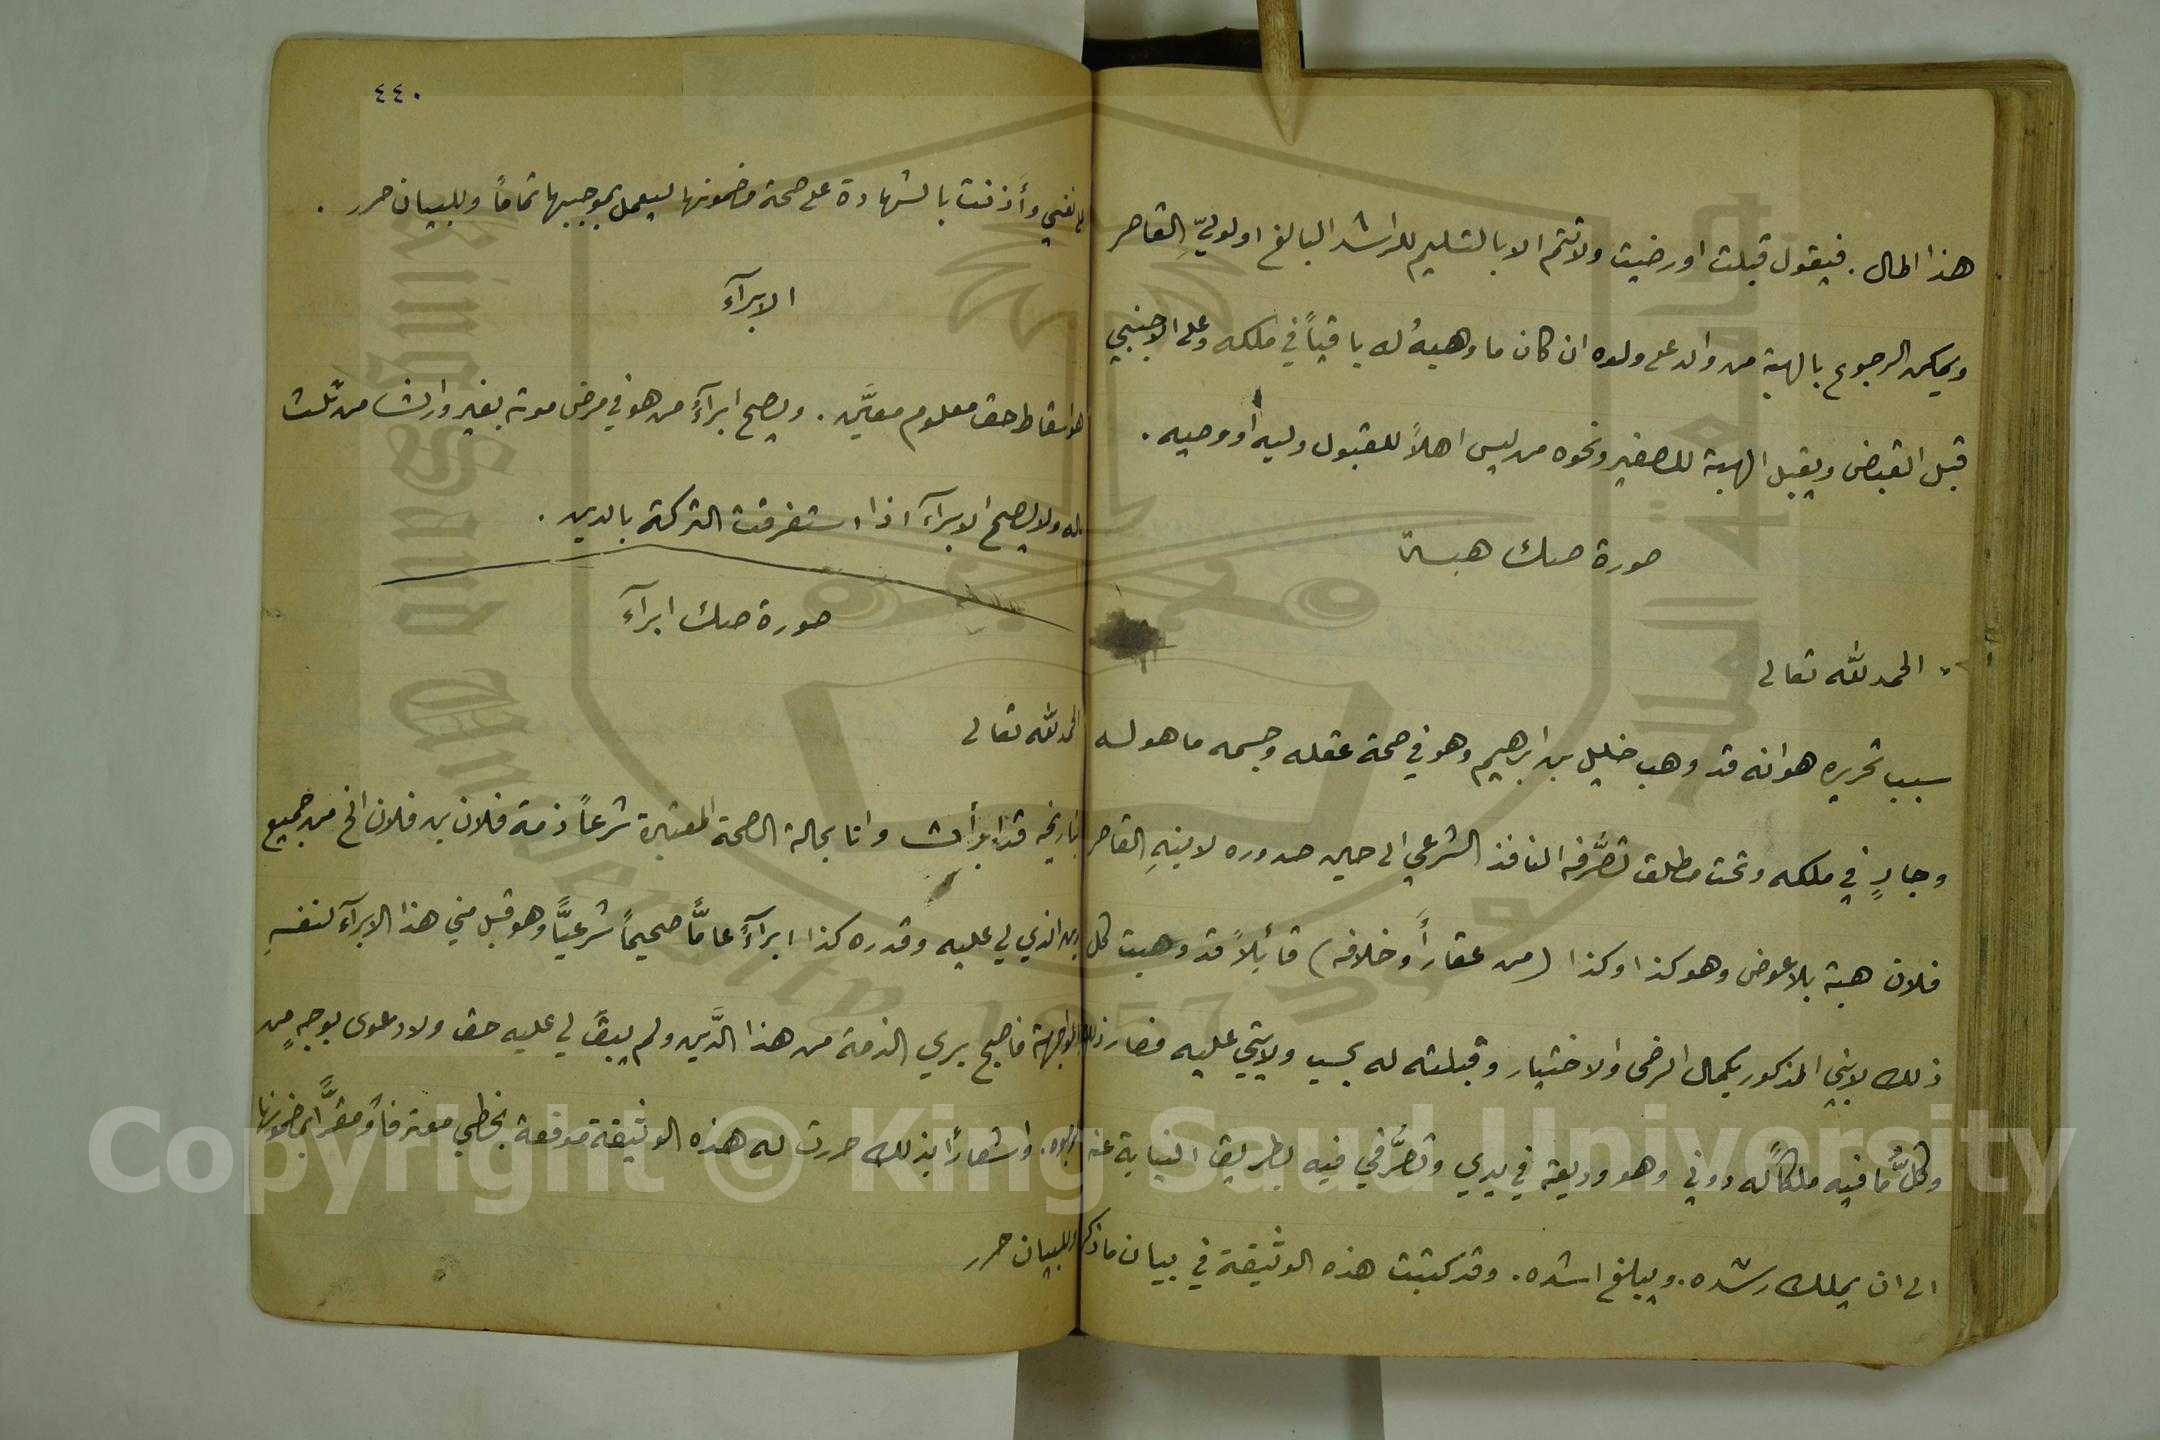 هذا المال . فيقول قبلت او رضيت ولا تتم الا بالتسليم للراشد البالغ او لوليِّ القاصر
ويمكن الرجوع بالهبة من والد على ولده ان كان ما وهبهُ له باقياً في ملكه وعلى الاجنبي
قبل القبض ويقبل الهبة للصغير ونحوه من ليس اهلاً للقبول وليه او وصيه .
صورة صك هبة
الحمد لله تعالى
سبب تحريره هو انه قد وهب خليل بن ابرهيم وهو في صحة عقله وجسمه ما هو له
وجارٍ في ملكه وتحت مطلق تصرَّفه النافذ الشرعي الى حين صدوره لابنهِ القاصر
فلان هبة بلا عوض وهو كذا وكذا (من عقار أو خلافه) قائلاً قد وهبت كل
ذلك لابني المذكور بكمال الرضى والاختيار وقبلته له بحسب ولايتي عليه فصار ذلك
وكلُّ ما فيه ملكاً له دوني وهو وديعة في يدي وتصرُّفي فيه بطريق النيابة عنه
الى ان يملك رشده . ويبلغ اشده . وقد كتبت هذه الوثيقة في بيان ما ذكر
٤٤٠
على نفسي وأذنت بالشهادة على صحة مضمونها ليعمل بموجبها تماماً وللبيان حرر .
الابرآء
هو اسقاط حق معلوم معيَّن . ويصح ابرآءُ من هو في مرض موته بغير وارث من ثلث
ماله ولا يصح الابرآء اذا استغرقت التركة بالدين .
صورة صك ابرآء
الحمد لله تعالى
بتاريخه قد ابرأت وانا بحالة الصحة المعتبرة شرعاً ذمة فلان بن فلان الخ من جميع
الدين الذي لي عليه وقدره كذا ابرآءً عامًّا صحيحاً شرعيًّا وهو قبل مني هذا الابرآء لنفسهِ
بالمواجهة فاصبح بري الذمة من هذا الدَّين ولم يبقَ لي عليه حق ولا دعوى بوجهٍ من
الوجوه . واشعاراً بذلك حررت له هذه الوثيقة موقعة بخطي معترفاً ومقرًّا بمضمونها
وللبيان حرر
Copyright © King Saud University
King Saud University
1957